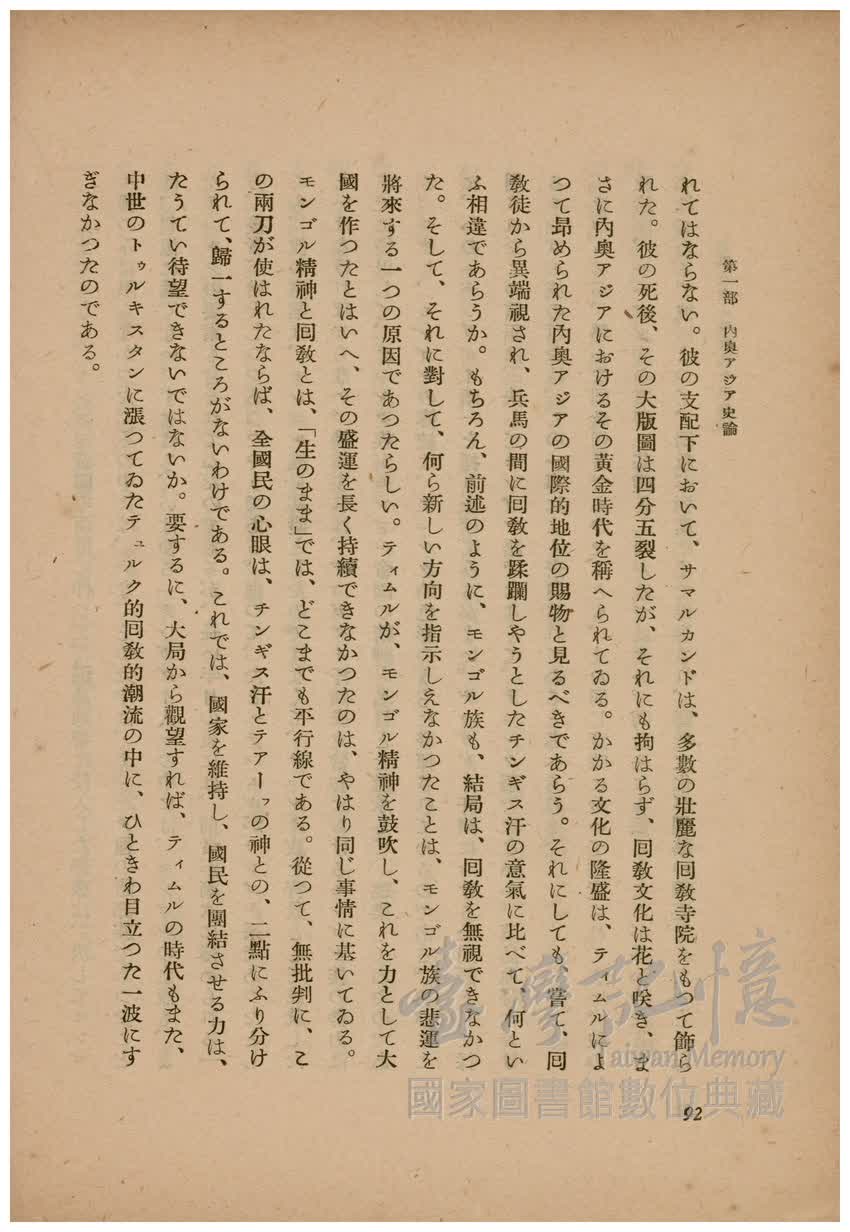 第一部　內奥アジア史論
れてはならない。彼の支配下において、サマルカンドは、多數の壯麗な囘敎寺院をもつて飾ら
れた。彼の死後、その大版圖は四分五裂したが、それにも拘はらず、囘敎文化は花と咲き、ま
さに內奥アジアにおけるその黃金時代を稱へられてゐる。かかる文化の隆盛は、ティムルによ
つて昻められた內奥アジアの國際的地位の賜物と見るべきであらう。それにしても、嘗て、囘
敎徒から異端視され、兵馬の間に囘敎を蹂躙しやうとしたチンギス汗の意氣に比べて、何とい
ふ相違であらうか。もちろん、前述のように、モンゴル族も、結局は、囘敎を無視できなかつ
た。そして、それに對して、何ら新しい方向を指示しえなかつたことは、モンゴル族の悲運を
將來する一つの原因であつたらしい。ティムルが、モンゴル精神を鼓吹し、これを力として大
國を作つたとはいへ、その盛運を長く持續できなかつたのは、やはり同じ事情に基いてゐる。
モンゴル精神と囘敎とは、「生のまま」では、どこまでも平行線である。從つて、無批判に、こ
の兩刀が使はれたならば、全國民の心眼は、チンギス汗とテアーッの神との、二點にふり分け
られて、歸一するところがないわけである。これでは、國家を維持し、國民を團結させる力は、
たうてい待望できないではないか。要するに、大局から觀望すれば、ティムルの時代もまた、
中世のトゥルキスタンに漲つてゐたテュルク的囘敎的潮流の中に、ひときわ目立つた一波にす
ぎなかつたのである。
92
臺灣記憶
Taiwan Memory
國家圖書館數位典藏